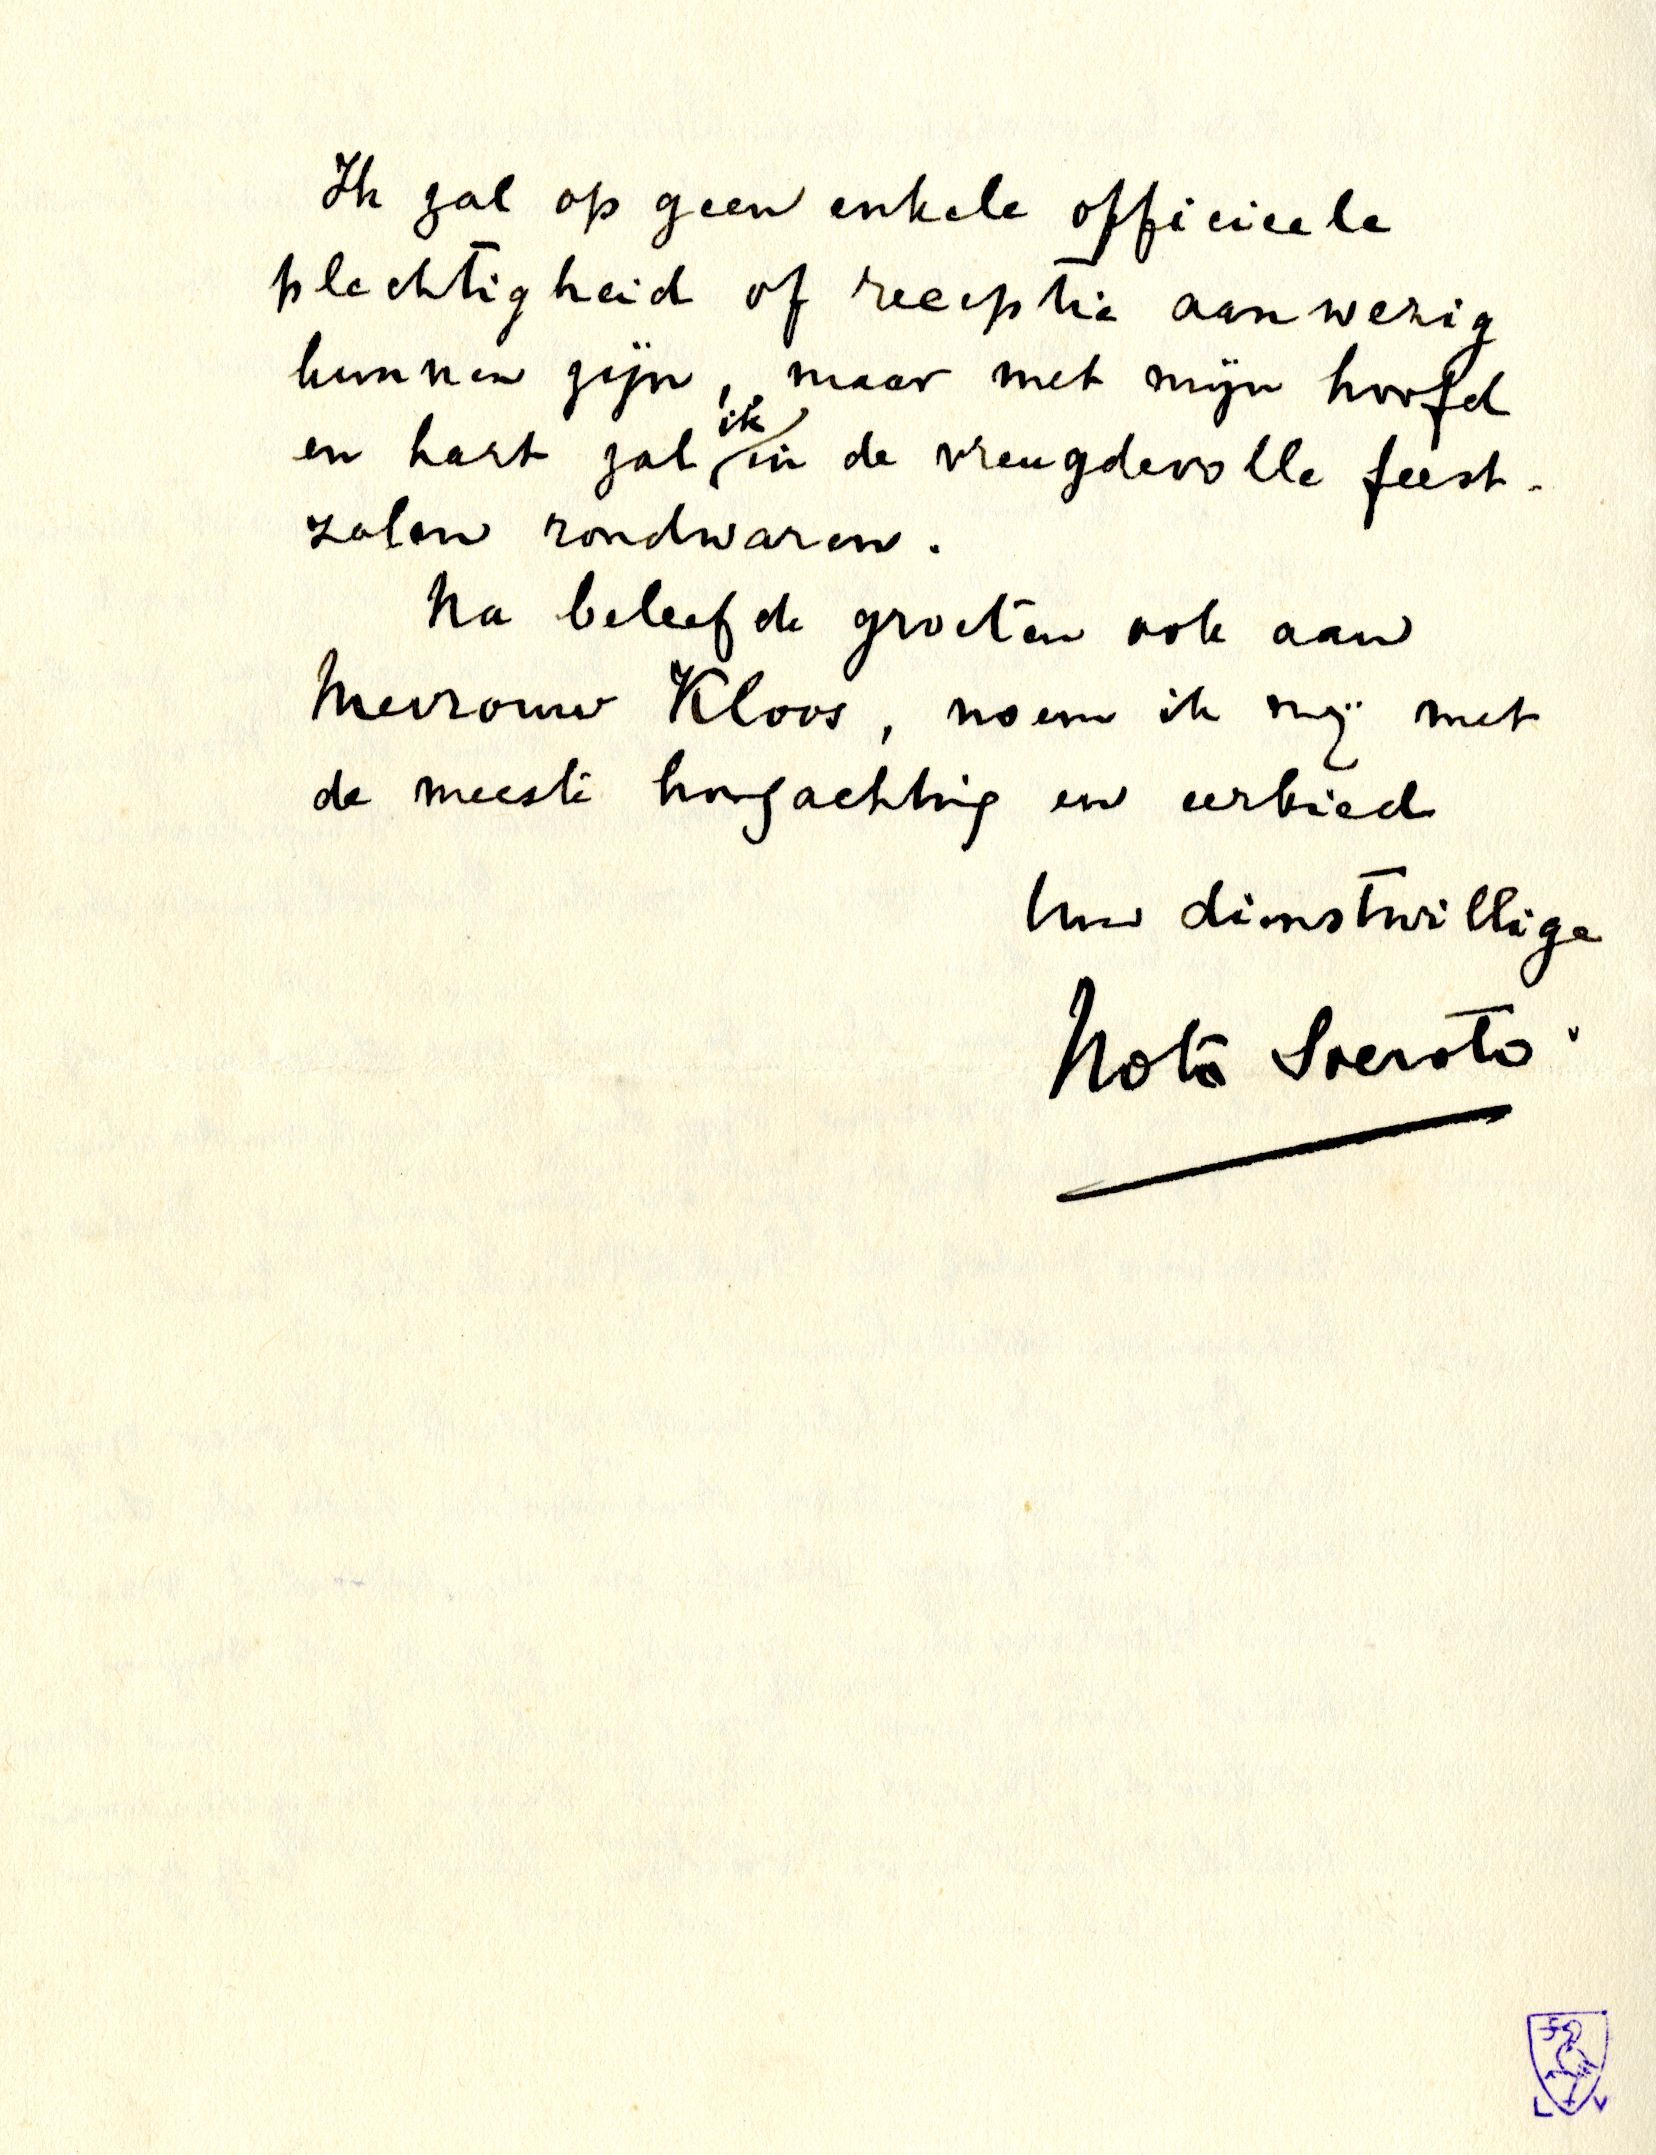 Ik zal op geen enkele officieele
plechtigheid of receptie aanwezig
kunnen zijn, maar met mijn hoofd
en hart zal ik in de vreugdevolle feest-
zalen rondwaren.
Na beleefde groeten ook aan
Mevrouw Kloos, noem ik mij met
de meeste hoogachting en eerbied
Uw dienstwillige
Noto Soeroto.
L V